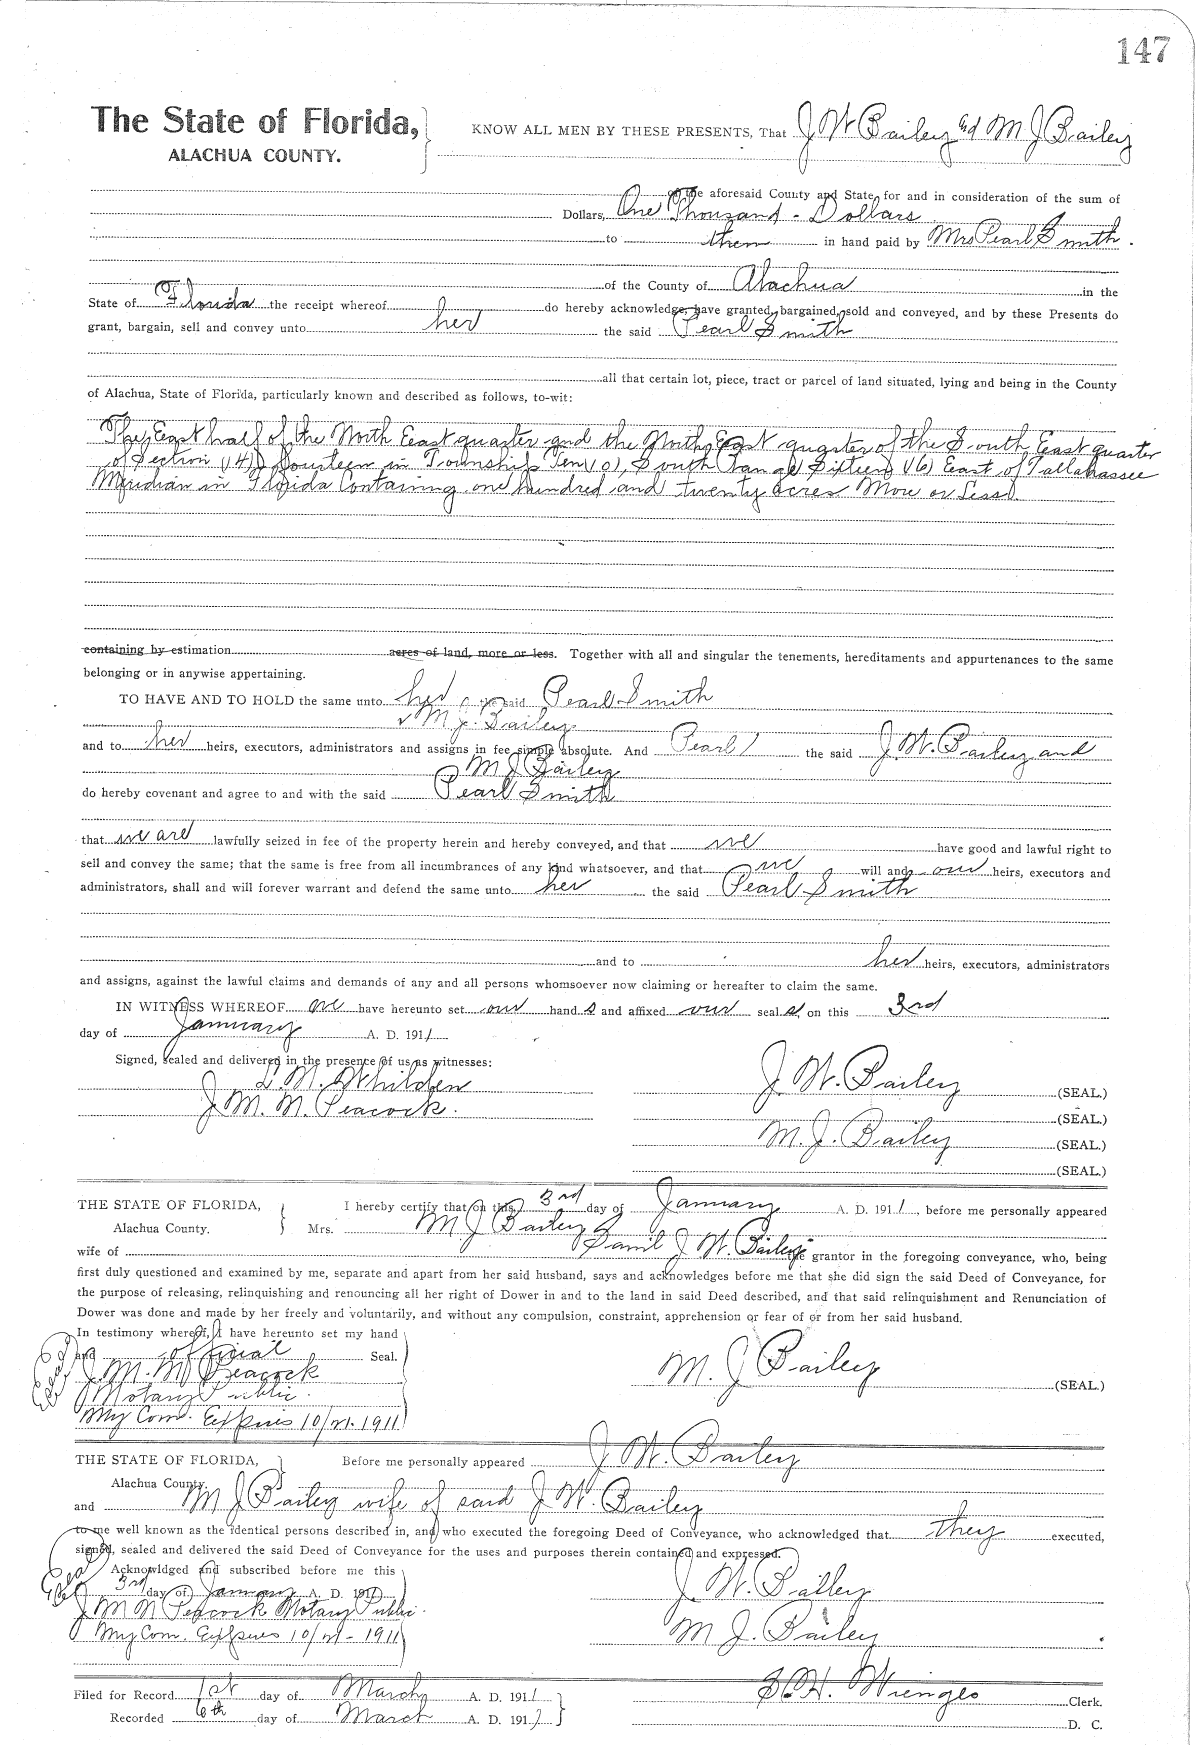 147
The State of Florida,
ALACHUA COUNTY.
KNOW ALL MEN BY THESE PRESENTS, That J W Bailey and M J Bailey
of the aforesaid County and State, for and in consideration of the sum of
Dollars, One Thousand - Dollars
to them in hand paid by Mrs Pearl Smith.
of the County of Alachua in the
State of Florida the receipt whereof do hereby acknowledge, have granted, bargained, sold and conveyed, and by these Presents do
grant, bargain, sell and convey unto her the said Pearl Smith
all that certain lot, piece, tract or parcel of land situated, lying and being in the County
of Alachua, State of Florida, particularly known and described as follows, to-wit:
The East half of the North East quarter and the North East quarter of the South East quarter
of Section (14) fourteen in Township Ten (10), South Range Sixteen (16) East of Tallahassee
Meridian in Florida Containing one hundred and twenty acres More or Less.
containing by estimation acres of land, more or less. Together with all and singular the tenements, hereditaments and appurtenances to the same
belonging or in anywise appertaining.
TO HAVE AND TO HOLD the same unto her the said Pearl Smith
M J. Bailey
and to her heirs, executors, administrators and assigns in fee simple absolute. And Pearl the said J. W. Bailey and
M J Bailey
do hereby covenant and agree to and with the said Pearl Smith
that we are lawfully seized in fee of the property herein and hereby conveyed, and that we have good and lawful right to
sell and convey the same; that the same is free from all incumbrances of any kind whatsoever, and that we will and our heirs, executors and
administrators, shall and will forever warrant and defend the same unto her the said Pearl Smith
and to her heirs, executors, administrators
and assigns, against the lawful claims and demands of any and all persons whomsoever now claiming or hereafter to claim the same.
IN WITNESS WHEREOF we have hereunto set our hand s and affixed our seal s, on this 3rd
day of January A. D. 1911
Signed, sealed and delivered in the presence of us as witnesses:
L. M. Whilden
J. M. N. Peacock.
J. W. Bailey (SEAL.)
(SEAL.)
M. J. Bailey (SEAL.)
(SEAL.)
THE STATE OF FLORIDA,
Alachua County.
I hereby certify that on this 3rd day of January A. D. 1911, before me personally appeared
Mrs. M J Bailey
wife of J W. Bailey the grantor in the foregoing conveyance, who, being
first duly questioned and examined by me, separate and apart from her said husband, says and acknowledges before me that she did sign the said Deed of Conveyance, for
the purpose of releasing, relinquishing and renouncing all her right of Dower in and to the land in said Deed described, and that said relinquishment and Renunciation of
Dower was done and made by her freely and voluntarily, and without any compulsion, constraint, apprehension or fear of or from her said husband.
In testimony whereof, I have hereunto set my hand
and official Seal.
J. M. N Peacock
Notary Public.
My Com. Expires 10/21. 1911
M. J Bailey (SEAL.)
THE STATE OF FLORIDA,
Alachua County.
Before me personally appeared J W. Bailey
and M J Bailey wife of said J W. Bailey
to me well known as the identical persons described in, and who executed the foregoing Deed of Conveyance, who acknowledged that they executed,
signed, sealed and delivered the said Deed of Conveyance for the uses and purposes therein contained and expressed.
Acknowldged and subscribed before me this
3rd day of January A. D. 191
J M N Peacock Notary Public.
My Com. Expires 10/21 - 1911
J W. Bailey
M J. Bailey
Filed for Record 1st day of March A. D. 1911
Recorded 6th day of March A. D. 191
S. H. Wienges Clerk.
D. C.